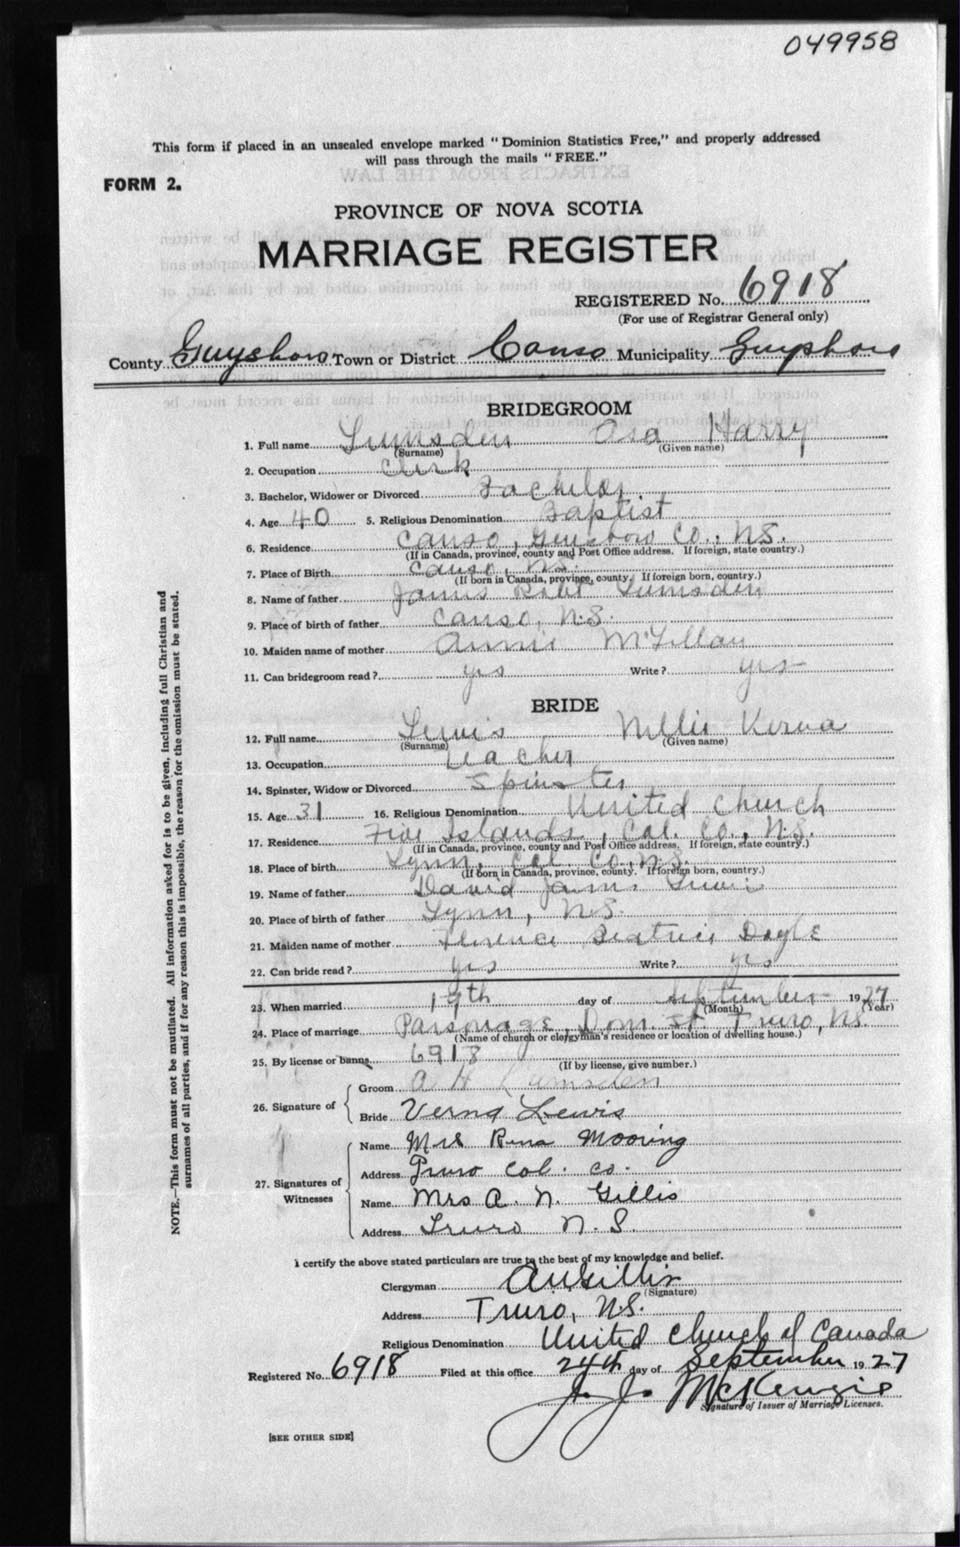 049958
This form if placed in an unsealed envelope marked "Dominion Statistics Free," and properly addressed
will pass through the mails "FREE."
FORM 2.
PROVINCE OF NOVA SCOTIA
MARRIAGE REGISTER
REGISTERED No. 6918
(For use of Registrar General only)
County Guysboro Town or District Canso Municipality Guysboro
BRIDEGROOM
1. Full name Lumsden Harry
(Surname) (Given name)
2. Occupation Clerk
3. Bachelor, Widower or Divorced Bachelor
4. Age 40 5. Religious Denomination Baptist
6. Residence Canso, Guysboro Co., N.S.
(If in Canada, province, county and Post Office address. If foreign, state country.)
7. Place of Birth Canso, N.S.
(If born in Canada, province, county. If foreign born, country.)
8. Name of father James Robt Lumsden
9. Place of birth of father Canso, N.S.
10. Maiden name of mother Annie
11. Can bridegroom read? yes Write? yes
BRIDE
12. Full name Lewis Nellie Verna
(Surname) (Given name)
13. Occupation Teacher
14. Spinster, Widow or Divorced Spinster
15. Age 31 16. Religious Denomination United Church
17. Residence Five Islands, Col. Co., N.S.
(If in Canada, province, county and Post Office address. If foreign, state country.)
18. Place of birth Lynn, Col. Co., N.S.
(If born in Canada, province, county. If foreign born, country.)
19. Name of father David James Lewis
20. Place of birth of father Lynn, N.S.
21. Maiden name of mother Florence Beatrice Doyle
22. Can bride read? yes Write? yes
23. When married 19th day of September 1927
(Month) (Year)
24. Place of marriage Parsonage, Dom. St. Truro, N.S.
(Name of church or clergyman's residence or location of dwelling house.)
25. By license or banns 6918
(If by license, give number.)
26. Signature of
Groom A H Lumsden
Bride Verna Lewis
27. Signatures of Witnesses
Name Mrs Rena Mooring
Address Truro Col. Co.
Name Mrs A. N. Gillis
Address Truro N. S.
I certify the above stated particulars are true to the best of my knowledge and belief.
Clergyman A N Gillis
(Signature)
Address Truro, N.S.
Religious Denomination United Church of Canada
Registered No. 6918 Filed at this office 24th day of September 1927
J. J. McKenzie
Signature of Issuer of Marriage Licenses.
[SEE OTHER SIDE]
NOTE.—This form must not be mutilated. All information asked for is to be given, including full Christian and
surnames of all parties, and if for any reason this is impossible, the reason for the omission must be stated.